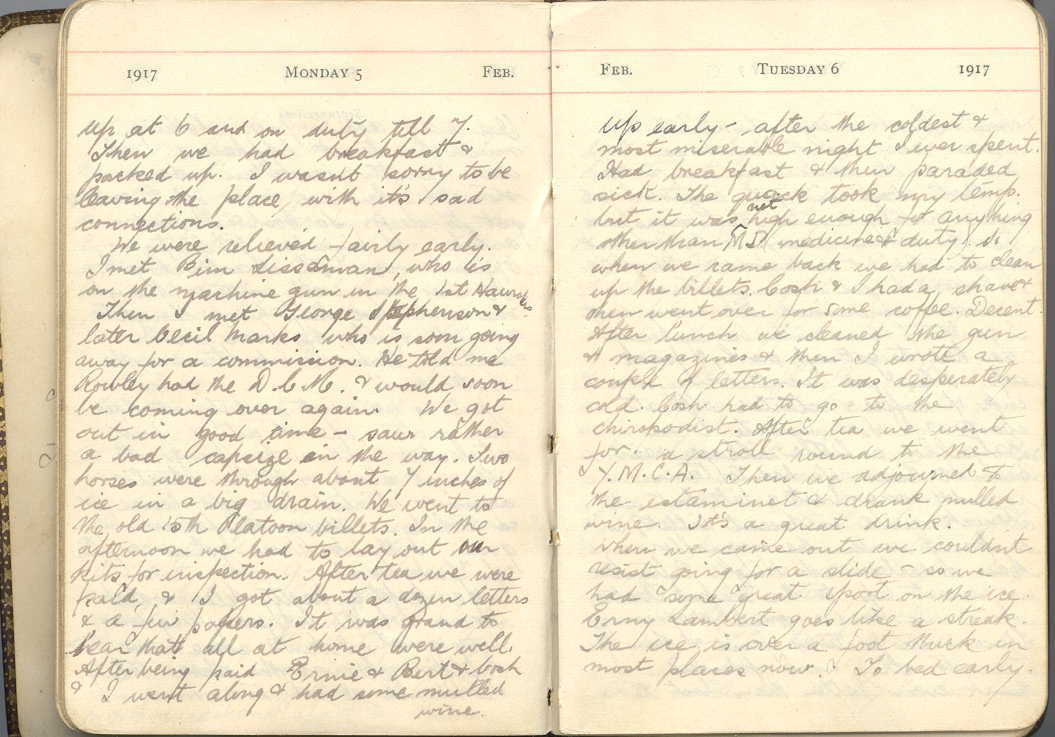 1917 MONDAY 5 FEB.
Up at 6 and on duty till 7.
Then we had breakfast &
packed up. I wasn't sorry to be
leaving the place, with it's sad
connections.
We were relieved fairly early.
I met Bim, who is
on the machine gun in the 1st
Then I met George Stephenson &
later Cecil Marks who is soon going
away for a commission. He told me
Rowley had the D.C.M. & would soon
be coming over again. We got
out in good time - saw rather
a bad capsize on the way. Two
horses were through about 7 inches of
ice in a big drain. We went to
the old Platoon billets. In the
afternoon we had to lay out our
kits for inspection. After tea we were
paid, & I got about a dozen letters
& a few papers. It was grand to
hear that all at home were well.
After being paid Ernie & Bert & Cosh
& I went along & had some mulled
wine.
FEB. TUESDAY 6 1917
Up early - after the coldest &
most miserable night I ever spent.
Had breakfast & then paraded
sick. The quack took my temp.
but it was not high enough for anything
other than medicine & duty. So
when we came back we had to clean
up the billets. Cosh & I had a shave &
then went over for some coffee. Decent.
After lunch we cleaned the gun
& magazines & then I wrote a
couple of letters. It was desperately
cold. Cosh had to go to the
chiropodist. After tea we went
for a stroll round to the
Y.M.C.A. Then we adjourned to
the estaminet & drank mulled
wine. It's a great drink.
When we came out we couldn't
resist going for a slide - so we
had some great sport on the ice.
Erny Lambert goes like a streak.
The ice is over a foot thick in
most places now. To bed early.